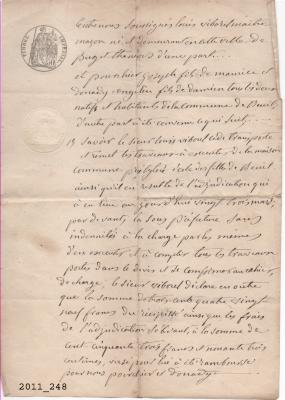 Entre nous soussignés Louis Viborel maître
maçon né et demeurant en cette ville de
Puget Théniers d'une part.
et Pourchier Joseph fils de Maurice et
Donadey fils de Damien tous deux
natifs et habitants de la commune de Beuil
d'autre part a été convenu ce qui suit.
Savoir le sieur Louis Viborel cède transporte
et remet les travaux à exécuter de la maison
commune presbytère école des filles de Beuil
ainsi qu'il en résulte de l'adjudication qui
a eu lieu au jour d'hui vingt trois mars,
par devant la sous préfecture sans
indemnités à la charge par les mêmes
d'en exécuter et à compléter tous les travaux
portés dans le devis et de se conformer au cahier
de charge, le sieur Viborel déclare en outre
que la somme de trois cents quatre vingt
neuf francs du ainsi que les frais
de l'adjudication s'élevant à la somme de
cent cinquante trois francs et nonante trois
centimes, versé par lui a été remboursé
par nous Pourchier et Donadey
2011_248